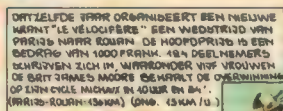 DATZELFDE JAAR ORGANISEERT EEN NIEUWE
KRANT "LE VÉLOCIPÈRE" EEN WEDSTRIJD VAN
PARIJS NAAR ROUAN. DE HOOFDPRIJS IS EEN
BEDRAG VAN 1000 FRANK. 184 DEELNEMERS
SCHRIJVEN ZICH IN, WAARONDER VIJF VROUWEN
DE BRIT JAMES MOORE BEHAALT DE OVERWINNING
OP ZIJN CYCLE MICHAUX IN 10UUR EN 84'.
(PARIJS-ROUAN: 13KM) (ONG. 13KM/U).